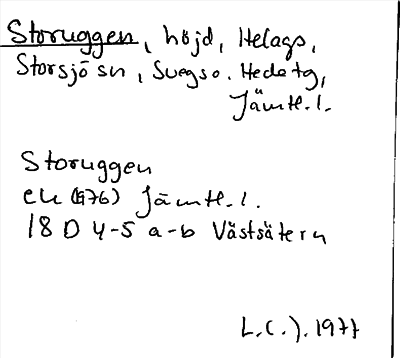 Storuggen, höjd, Helags,
Storsjö sn, Svegs o. Hede tg,
Jämtl. l.
Storuggen
ek (976) Jämtl. l.
18 D 4-5 a-b Västsätern
L.C.J. 1977